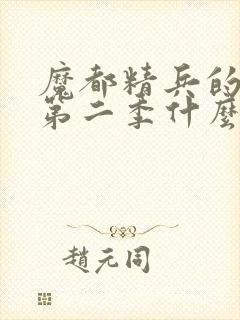 魔都精兵的
第二季什麼
趙元同